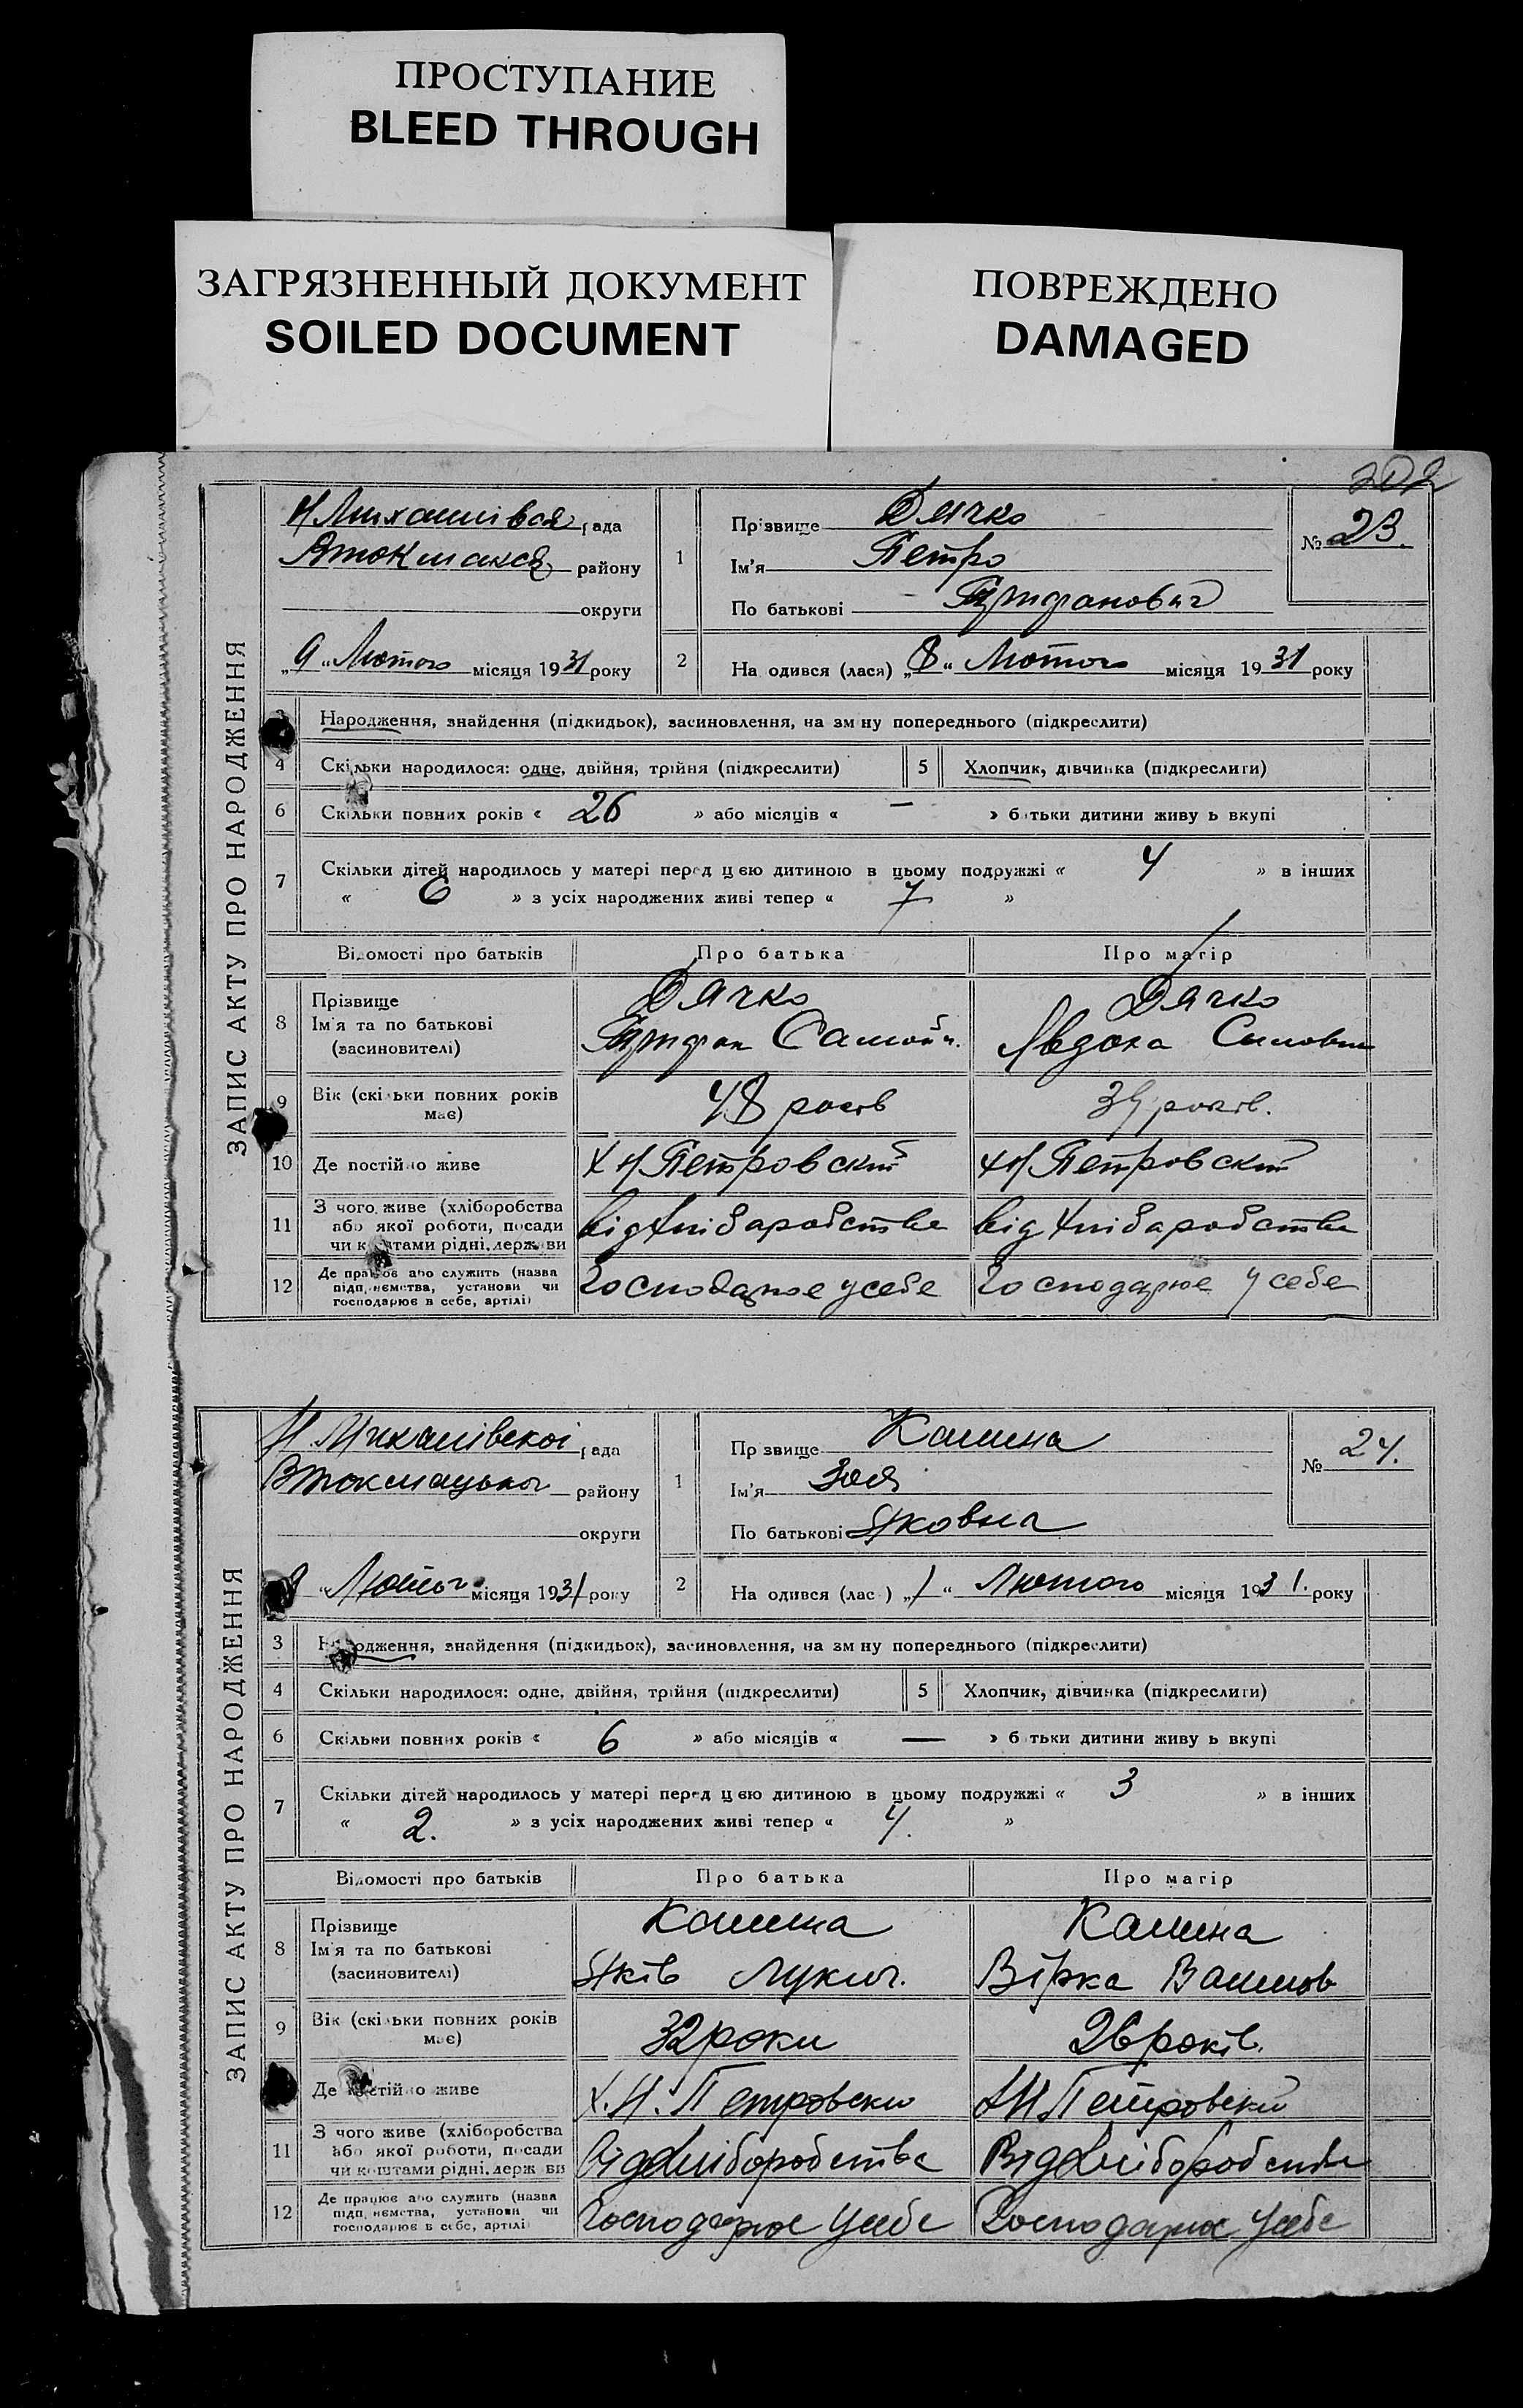 ПРОСТУПАНИЕ
BLEED THROUGH
ЗАГРЯЗНЕННЫЙ ДОКУМЕНТ
SOILED DOCUMENT
ПОВРЕЖДЕНО
DAMAGED
202
ЗАПИС АКТУ ПРО НАРОДЖЕННЯ
рада
району
округи
„9“ Лютого місяця 1931 року
1
Прізвище Дячко
Ім'я Петро
По батькові Трифанович
№ 23.
2
На одився (лася) „8“ Лютого місяця 1931 року
Народження, знайдення (підкидьок), засиновлення, на зм ну попереднього (підкреслити)
4 Скільки народилося: одне, двійня, трійня (підкреслити)
5 Хлопчик, дівчинка (підкреслити)
6 Скільки повних років « 26 » або місяців « — » батьки дитини живу ь вкупі
7 Скільки дітей народилось у матері перед цією дитиною в цьому подружжі « 4 » в інших
« 6 » з усіх народжених живі тепер « 7 »
Відомості про батьків Про батька Про матір
8 Прізвище Дячко Дячко
Ім'я та по батькові Трифан Самойл. Явдоха
(засиновителі)
9 Вік (скільки повних років має) 48 років 39 років.
10 Де постійно живе Х Н Петровский Х Н Петровский
11 З чого живе (хліборобства або якої роботи, посади чи коштами рідні, держави від хліборобства від хліборобства
12 Де працює або служить (назва підприємства, установи чи господарює в себе, артілі) Господарює у себе Господарює у себе
ЗАПИС АКТУ ПРО НАРОДЖЕННЯ
Н. Михайлівської рада
В Токмацького району
округи
Лютого місяця 1931 року
1
Пр звище Калина
Ім'я Зоя
По батькові Яковна
№ 24.
2
На одився (лас ) „1“ Лютого місяця 1931. року
3 Народження, знайдення (підкидьок), засиновлення, на зм ну попереднього (підкреслити)
4 Скільки народилося: одне, двійня, трійня (підкреслити)
5 Хлопчик, дівчинка (підкреслити)
6 Скільки повних років « 6 » або місяців « — » б тьки дитини живу ь вкупі
7 Скільки дітей народилось у матері перед цією дитиною в цьому подружжі « 3 » в інших
« 2. » з усіх народжених живі тепер « 4. »
Відомості про батьків Про батька Про матір
8 Прізвище Калина Калина
Ім'я та по батькові Яків Лукич. Вірка
(засиновителі)
9 Вік (скільки повних років має) 32 роки 26 років.
Де постійно живе Х. Н. Петровски Х Н Петровский
11 З чого живе (хліборобства або якої роботи, посади чи коштами рідні, держ ви Від хліборобства Від хліборобства
12 Де працює або служить (назва підприємства, установи чи господарює в себе, артілі Господарює у себе Господарює у себе